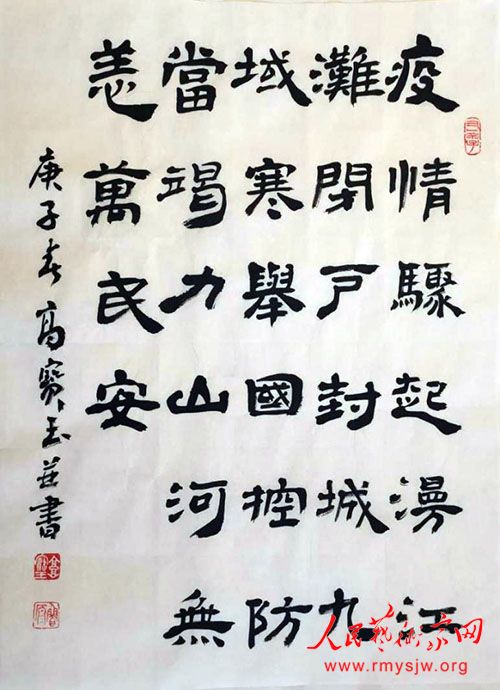 疫情驟起漫江
灘閉戶封城九
域寒舉國控防
當竭力山河無
恙萬民安
庚子春高寶玉並書
人民藝術家网
www.rmysjw.org